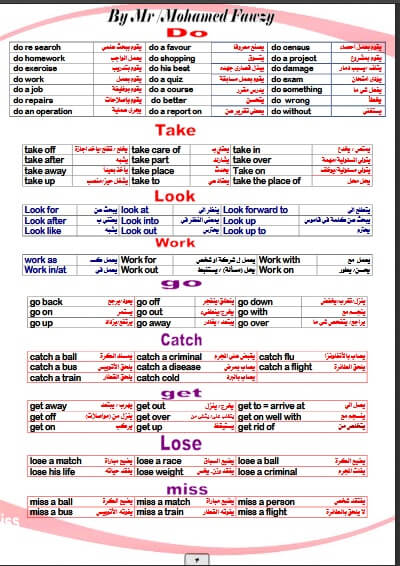 By Mr/Mohamed Fawzy
Do
do re search يقوم ببحث علمي do a favour يصنع معروفا do census يقوم بعمل احصاء
do homework يعمل الواجب do shopping يتسوق do a project يقوم بمشروع
do exercise يقوم بتدريب do his best يبذل قصارى جهده do damage يتلف /يسبب دمار
do work يقوم بعمل do a quiz يقوم بعمل مسابقة do exam يؤدي امتحان
do a job يقوم بوظيفة do a course يدرس مقرر do something يفعل شئ ما
do repairs يقوم باصلاحات do better يتحسن do wrong يخطأ
do an operation يجري عملية do a report on يعطي تقرير عن do without يستغني
Take
take off يخلع / تقلع /ياخذ اجازة take care of يعتني بـ take in يمتص / يخدع
take after يشبه take part يشارك take over يتولى المسئولية /مهمة
take away يأخذ بعيدا take place يحدث Take on يتولى مسئولية /يوظف
take up يشغل حيز/منصب take to يعتاد على take the place of يحل محل
Look
Look for يبحث عن look at ينظر الي Look forward to يتطلع الي
Look after يعتني بـ Look into يمعن النظر في Look up يبحث عن كلمة في قاموس
Look like يشبه Look out يحترس Look up to يحترم
Work
work as يعمل كـ Work for يعمل لـ شركة او شخص Work with يعمل مع
Work in/at يعمل في Work out يحل (مسألة) / يستنبط Work on يحسن/ يطور
go
go back يعود/يرجع go off ينطلق/ينفجر go down ينزل/تغرب/ينخفض
go on يستمر go out يخرج/ينطفئ go with ينسجم مع
go up يرتفع/يزداد go away يبتعد / يغادر go over يراجع / يتفحص شئ ما
Catch
catch a ball يمسك الكرة catch a criminal يقبض على المجرم catch flu يصاب بالأنفلونزا
catch a bus يلحق الأتوبيس catch a diseease يصاب بمرض catch a flight يلحق الطائرة
catch a train يلحق القطار catch cold يصاب بالبرد
get
get away يهرب / يبتعد get out يخرج/ ينزل get to = arrive at يصل الي
get off ينزل من (مواصلات) get over يتغلب علي/ يشفي من get on well with ينسجم مع
get on يركب get up يستيقظ get rid of يتخلص من
Lose
lose a match يضيع مباراة lose a race يضيع السباق lose a ball يضيع الكرة
lose his life يفقد حياته lose weight يفقد وزن، يخس lose a criminal يفلت المجرم
miss
miss a ball يضيع الكرة miss a match يضيع مباراة miss a person يفتقد شخص
miss a bus يفوته الأتوبيس miss a train يفوته القطار miss a flight لا يلحق بالطائرة
iss